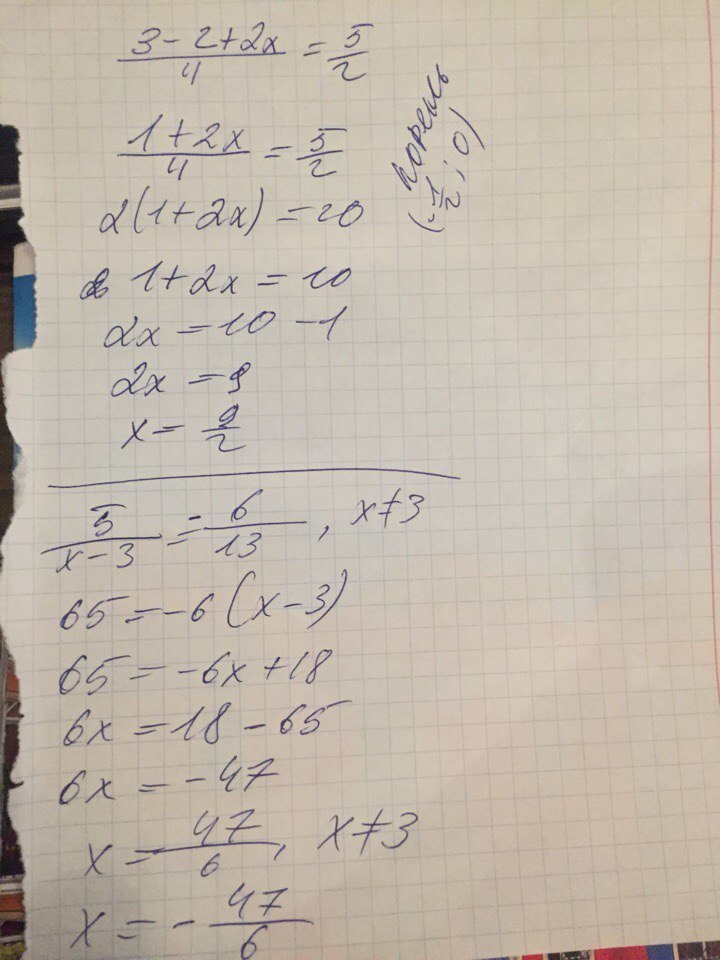 3-2+2x/4 = 5/2
1+2x/4 = 5/2
2(1+2x) = 20
1+2x = 10
2x = 10 - 1
2x = 9
x = 9/2
корень
(-1/2; 0)
5/x-3 = -6/13, x≠3
65 = -6(x-3)
65 = -6x+18
6x = 18 - 65
6x = -47
x = -47/6, x≠3
x = -47/6